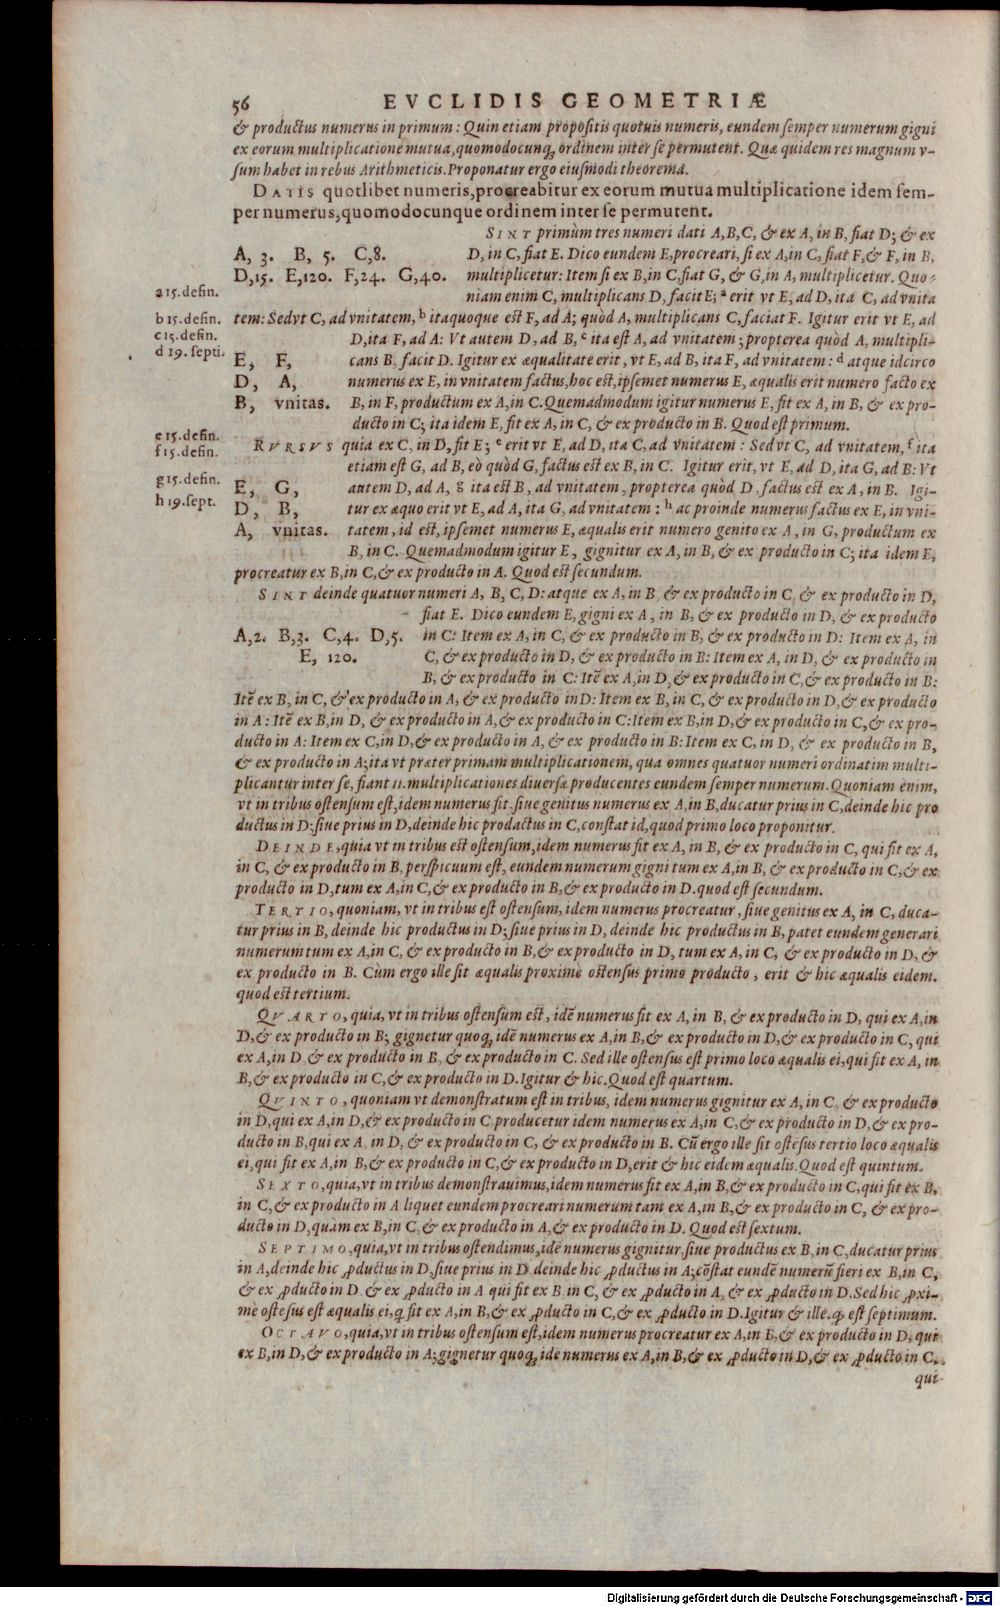 56 EVCLIDIS GEOMETRIÆ
& productus numerus in primum: Quin etiam propositis quotuis numeris, eundem semper numerum gigni
ex eorum multiplicatione mutua, quomodocunq; ordinem inter se permutent. Quæ quidem res magnum v-
sum habet in rebus Arithmeticis. Proponatur ergo eiusmodi theorema.
DATIS quotlibet numeris, procreabitur ex eorum mutua multiplicatione idem sem-
per numerus, quomodocunque ordinem inter se permutent.
SINT primùm tres numeri dati A, B, C, & ex A, in B, fiat D; & ex
A, 3. B, 5. C, 8. D, in C, fiat E. Dico eundem E, procreari, si ex A, in C, fiat F, & F, in B,
D, 15. E, 120. F, 24. G, 40. multiplicetur: Item si ex B, in C, fiat G, & G, in A, multiplicetur. Quo-
a 15. defin. niam enim C, multiplicans D, facit E; ᵃ erit vt E, ad D, ita C, ad vnita
b 15. defin. tem: Sed vt C, ad vnitatem, ᵇ ita quoque est F, ad A; quòd A, multiplicans C, faciat F. Igitur erit vt E, ad
c 15. defin. D, ita F, ad A: Vt autem D, ad B, ᶜ ita est A, ad vnitatem; propterea quòd A, multipli-
d 19. septi. E, F, cans B, facit D. Igitur ex æqualitate erit, vt E, ad B, ita F, ad vnitatem: ᵈ atque idcirco
D, A, numerus ex E, in vnitatem factus, hoc est, ipsemet numerus E, æqualis erit numero facto ex
B, vnitas. B, in F, productum ex A, in C. Quemadmodum igitur numerus E, fit ex A, in B, & ex pro-
ducto in C; ita idem E, fit ex A, in C, & ex producto in B. Quod est primum.
e 15. defin. RVRSVS quia ex C, in D, fit E; ᵉ erit vt E, ad D, ita C, ad vnitatem: Sed vt C, ad vnitatem, ᶠ ita
f 15. defin. etiam est G, ad B, eò quòd G, factus est ex B, in C. Igitur erit, vt E, ad D, ita G, ad B: Vt
g 15. defin. E, G, autem D, ad A, ᵍ ita est B, ad vnitatem, propterea quòd D, factus est ex A, in B. Igi-
h 19. sept. D, B, tur ex æquo erit vt E, ad A, ita G, ad vnitatem: ʰ ac proinde numerus factus ex E, in vni-
A, vnitas. tatem, id est, ipsemet numerus E, æqualis erit numero genito ex A, in G, productum ex
B, in C. Quemadmodum igitur E, gignitur ex A, in B, & ex producto in C; ita idem E,
procreatur ex B, in C, & ex producto in A. Quod est secundum.
SINT deinde quatuor numeri A, B, C, D: atque ex A, in B, & ex producto in C, & ex producto in D,
fiat E. Dico eundem E, gigni ex A, in B, & ex producto in D, & ex producto
A, 2. B, 3. C, 4. D, 5. in C: Item ex A, in C, & ex producto in B, & ex producto in D: Item ex A, in
E, 120. C, & ex producto in D, & ex producto in B: Item ex A, in D, & ex producto in
B, & ex producto in C: Itē ex A, in D, & ex producto in C, & ex producto in B:
Itē ex B, in C, & ex producto in A, & ex producto in D: Item ex B, in C, & ex producto in D, & ex producto
in A: Itē ex B, in D, & ex producto in A, & ex producto in C: Item ex B, in D, & ex producto in C, & ex pro-
ducto in A: Item ex C, in D, & ex producto in A, & ex producto in B: Item ex C, in D, & ex producto in B,
& ex producto in A; ita vt præter primam multiplicationem, qua omnes quatuor numeri ordinatim multi-
plicantur inter se, fiant 11. multiplicationes diuersæ producentes eundem semper numerum. Quoniam enim,
vt in tribus ostensum est, idem numerus fit, siue genitus numerus ex A, in B, ducatur prius in C, deinde hic pro
ductus in D; siue prius in D, deinde hic prodactus in C, constat id, quod primo loco proponitur.
DEINDE, quia vt in tribus est ostensum, idem numerus fit ex A, in B, & ex producto in C, qui fit ex A,
in C, & ex producto in B, perspicuum est, eundem numerum gigni tum ex A, in B, & ex producto in C, & ex
producto in D, tum ex A, in C, & ex producto in B, & ex producto in D. quod est secundum.
TERTIO, quoniam, vt in tribus est ostensum, idem numerus procreatur, siue genitus ex A, in C, duca-
tur prius in B, deinde hic productus in D; siue prius in D, deinde hic productus in B, patet eundem generari
numerum tum ex A, in C, & ex producto in B, & ex producto in D, tum ex A, in C, & ex producto in D, &
ex producto in B. Cùm ergo ille sit æqualis proximè ostensus primo producto, erit & hic æqualis eidem.
quod est tertium.
QVARTO, quia, vt in tribus ostensum est, idē numerus fit ex A, in B, & ex producto in D, qui ex A, in
D, & ex producto in B; gignetur quoq; idē numerus ex A, in B, & ex producto in D, & ex producto in C, qui
ex A, in D, & ex producto in B, & ex producto in C. Sed ille ostensus est primo loco æqualis ei, qui fit ex A, in
B, & ex producto in C, & ex producto in D. Igitur & hic. Quod est quartum.
QVINTO, quoniam vt demonstratum est in tribus, idem numerus gignitur ex A, in C, & ex producto
in D, qui ex A, in D, & ex producto in C. producetur idem numerus ex A, in C, & ex producto in D, & ex pro-
ducto in B, qui ex A, in D, & ex producto in C, & ex producto in B. Cū ergo ille sit ostēsus tertio loco æqualis
ei, qui fit ex A, in B, & ex producto in C, & ex producto in D, erit & hic eidem æqualis. Quod est quintum.
SEXTO, quia, vt in tribus demonstrauimus, idem numerus fit ex A, in B, & ex producto in C, qui fit ex B,
in C, & ex producto in A liquet eundem procreari numerum tam ex A, in B, & ex producto in C, & ex pro-
ducto in D, quàm ex B, in C, & ex producto in A, & ex producto in D. Quod est sextum.
SEPTIMO, quia, vt in tribus ostendimus, idē numerus gignitur, siue productus ex B, in C, ducatur prius
in A, deinde hic ꝓductus in D, siue prius in D deinde hic ꝓductus in A; cōstat eundē numerū fieri ex B, in C,
& ex ꝓducto in D. & ex ꝓducto in A qui fit ex B, in C, & ex ꝓducto in A, & ex ꝓducto in D. Sed hic ꝓxi-
mè ostēsus est æqualis ei, q fit ex A, in B, & ex ꝓducto in C, & ex ꝓducto in D. Igitur & ille. q est septimum.
OCTAVO, quia, vt in tribus ostensum est, idem numerus procreatur ex A, in B, & ex producto in D, qui
ex B, in D, & ex producto in A; gignetur quoq; idē numerus ex A, in B, & ex ꝓducto in D, & ex ꝓducto in C,
qui
Digitalisierung gefördert durch die Deutsche Forschungsgemeinschaft - DFG